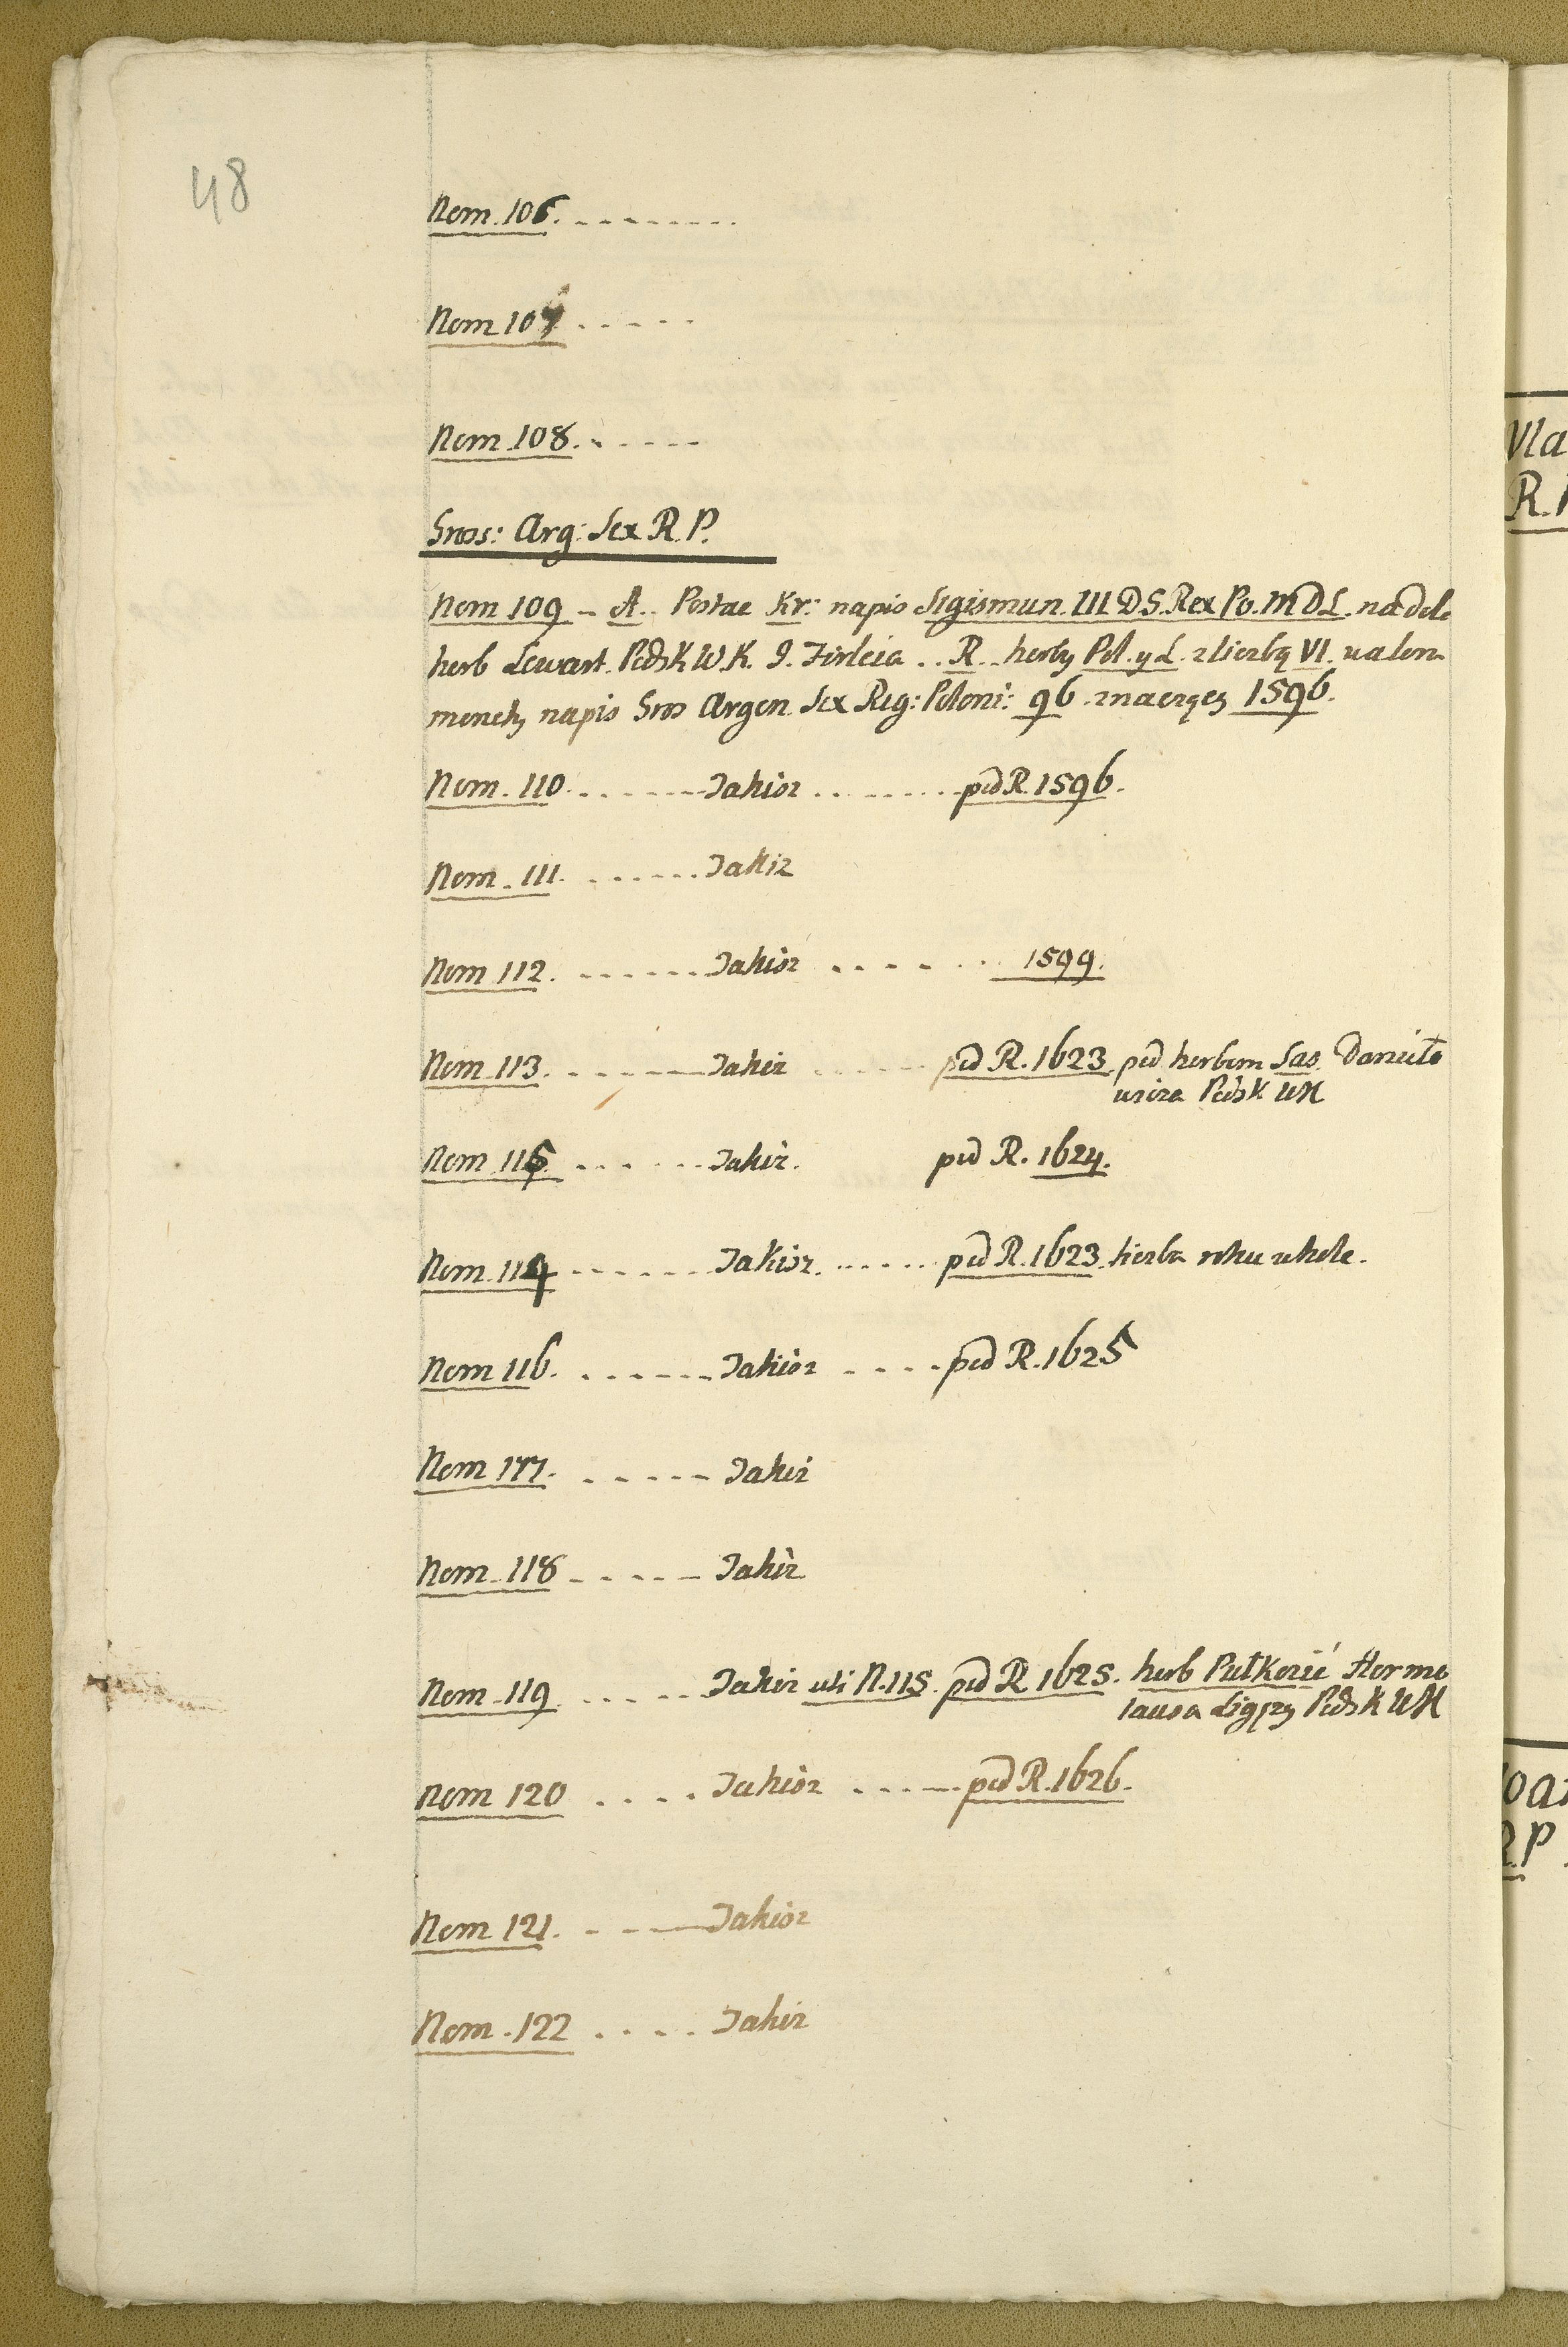 48
Nom. 106. - - - - - - - -
Nom 107 - - - - -
Nom 108. - - - - -
Gros: Arg: Sex R. P.
Nom 109 - A. Postac Kr: napis Sigismun. III D.S. Rex Po. M D L. na dole
herb Lewart. PodsK W. K. I. Firleia .. R. herby Pol. y L. z liczbą VI. u a len-
monety napis Gros Argen. Sex Reg: Poloni: 96 znaczący 1596.
Nom. 110. - - - - - - Takisz . . - - - - - pod R. 1596.
Nom. 111. - - - - - - Takiz
Nom 112. - - - - - - Takisz - - - - - - 1599.
Nom 113. - - - - - - Takiz - - - - pod R. 1623 pod herbem Sas. Daniło
wicza PodsK WK
Nom 115 - - - - - - Takiz. pod R. 1624.
Nom. 114 - - - - - - Takisz. - - - - - pod R. 1623. liczba roku w kole.
Nom 116. - - - - - - Takisz - - - - pod R. 1625
Nom 117. - - - - - Takiz
Nom 118 - - - - - Takiz
Nom 119. - - - - - Takiz uti N. 115. pod R 1625. herb Pułkozić Hermo
lausa Ligęzy PodsK WK
Nom 120 . . . . Takisz - - - - - pod R. 1626.
Nom 121. - - - Takisz
Nom. 122 . . . . Takiz
Vla
R. P
Joa
R.P.